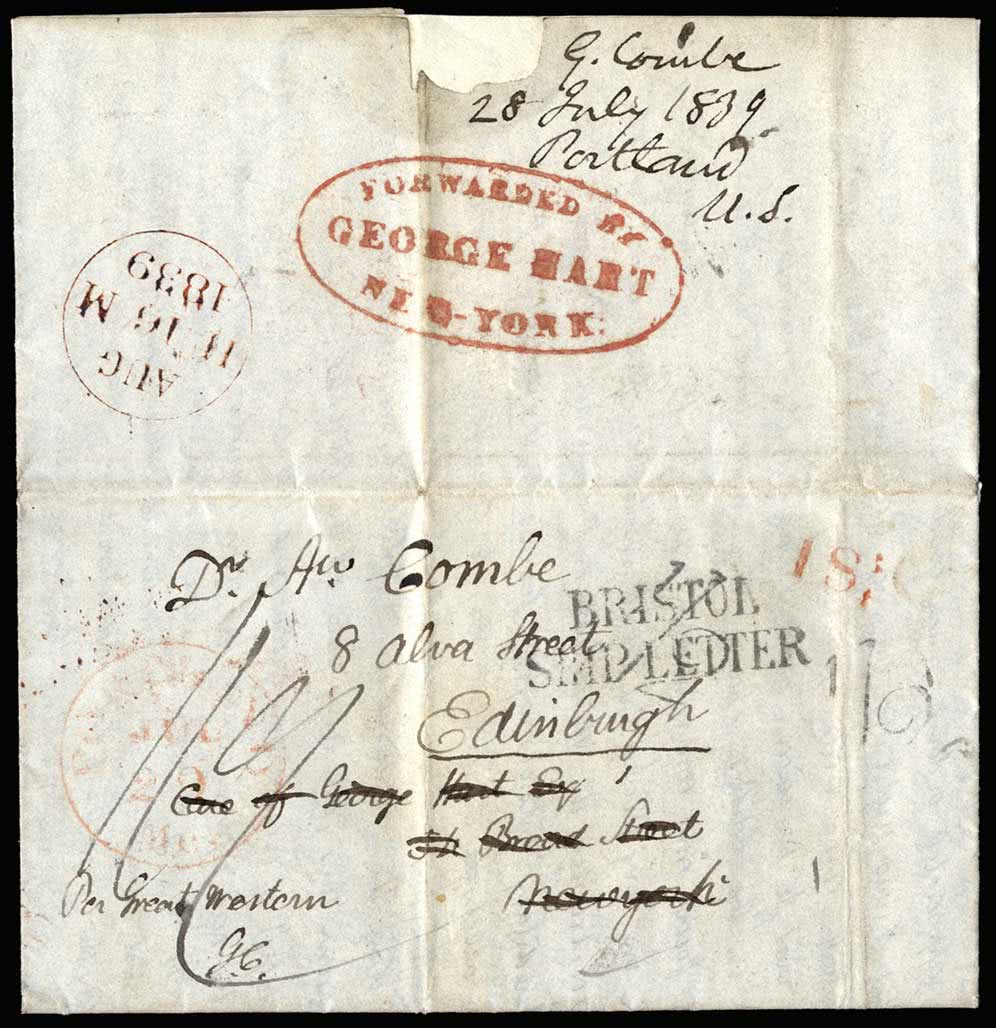 G. Combe
28 July 1839
Portland
U.S.
FORWARDED BY
GEORGE HART
NEW-YORK.
AUG
16 M
1839
Dr. Aw Combe
8 Alva Street
Edinburgh
Care of George Hart Esqr
Broad Street
Newyork
BRISTOL
SHIP LETTER
18¾
JUL
Per Great Western
GC.